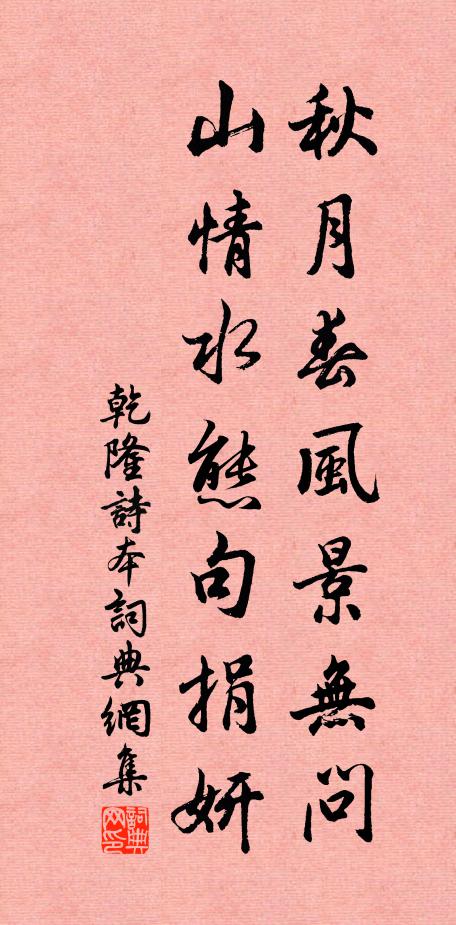 秋月春風景無問
山情水態句捐妍
乾隆詩本詞典網集
詞典網印